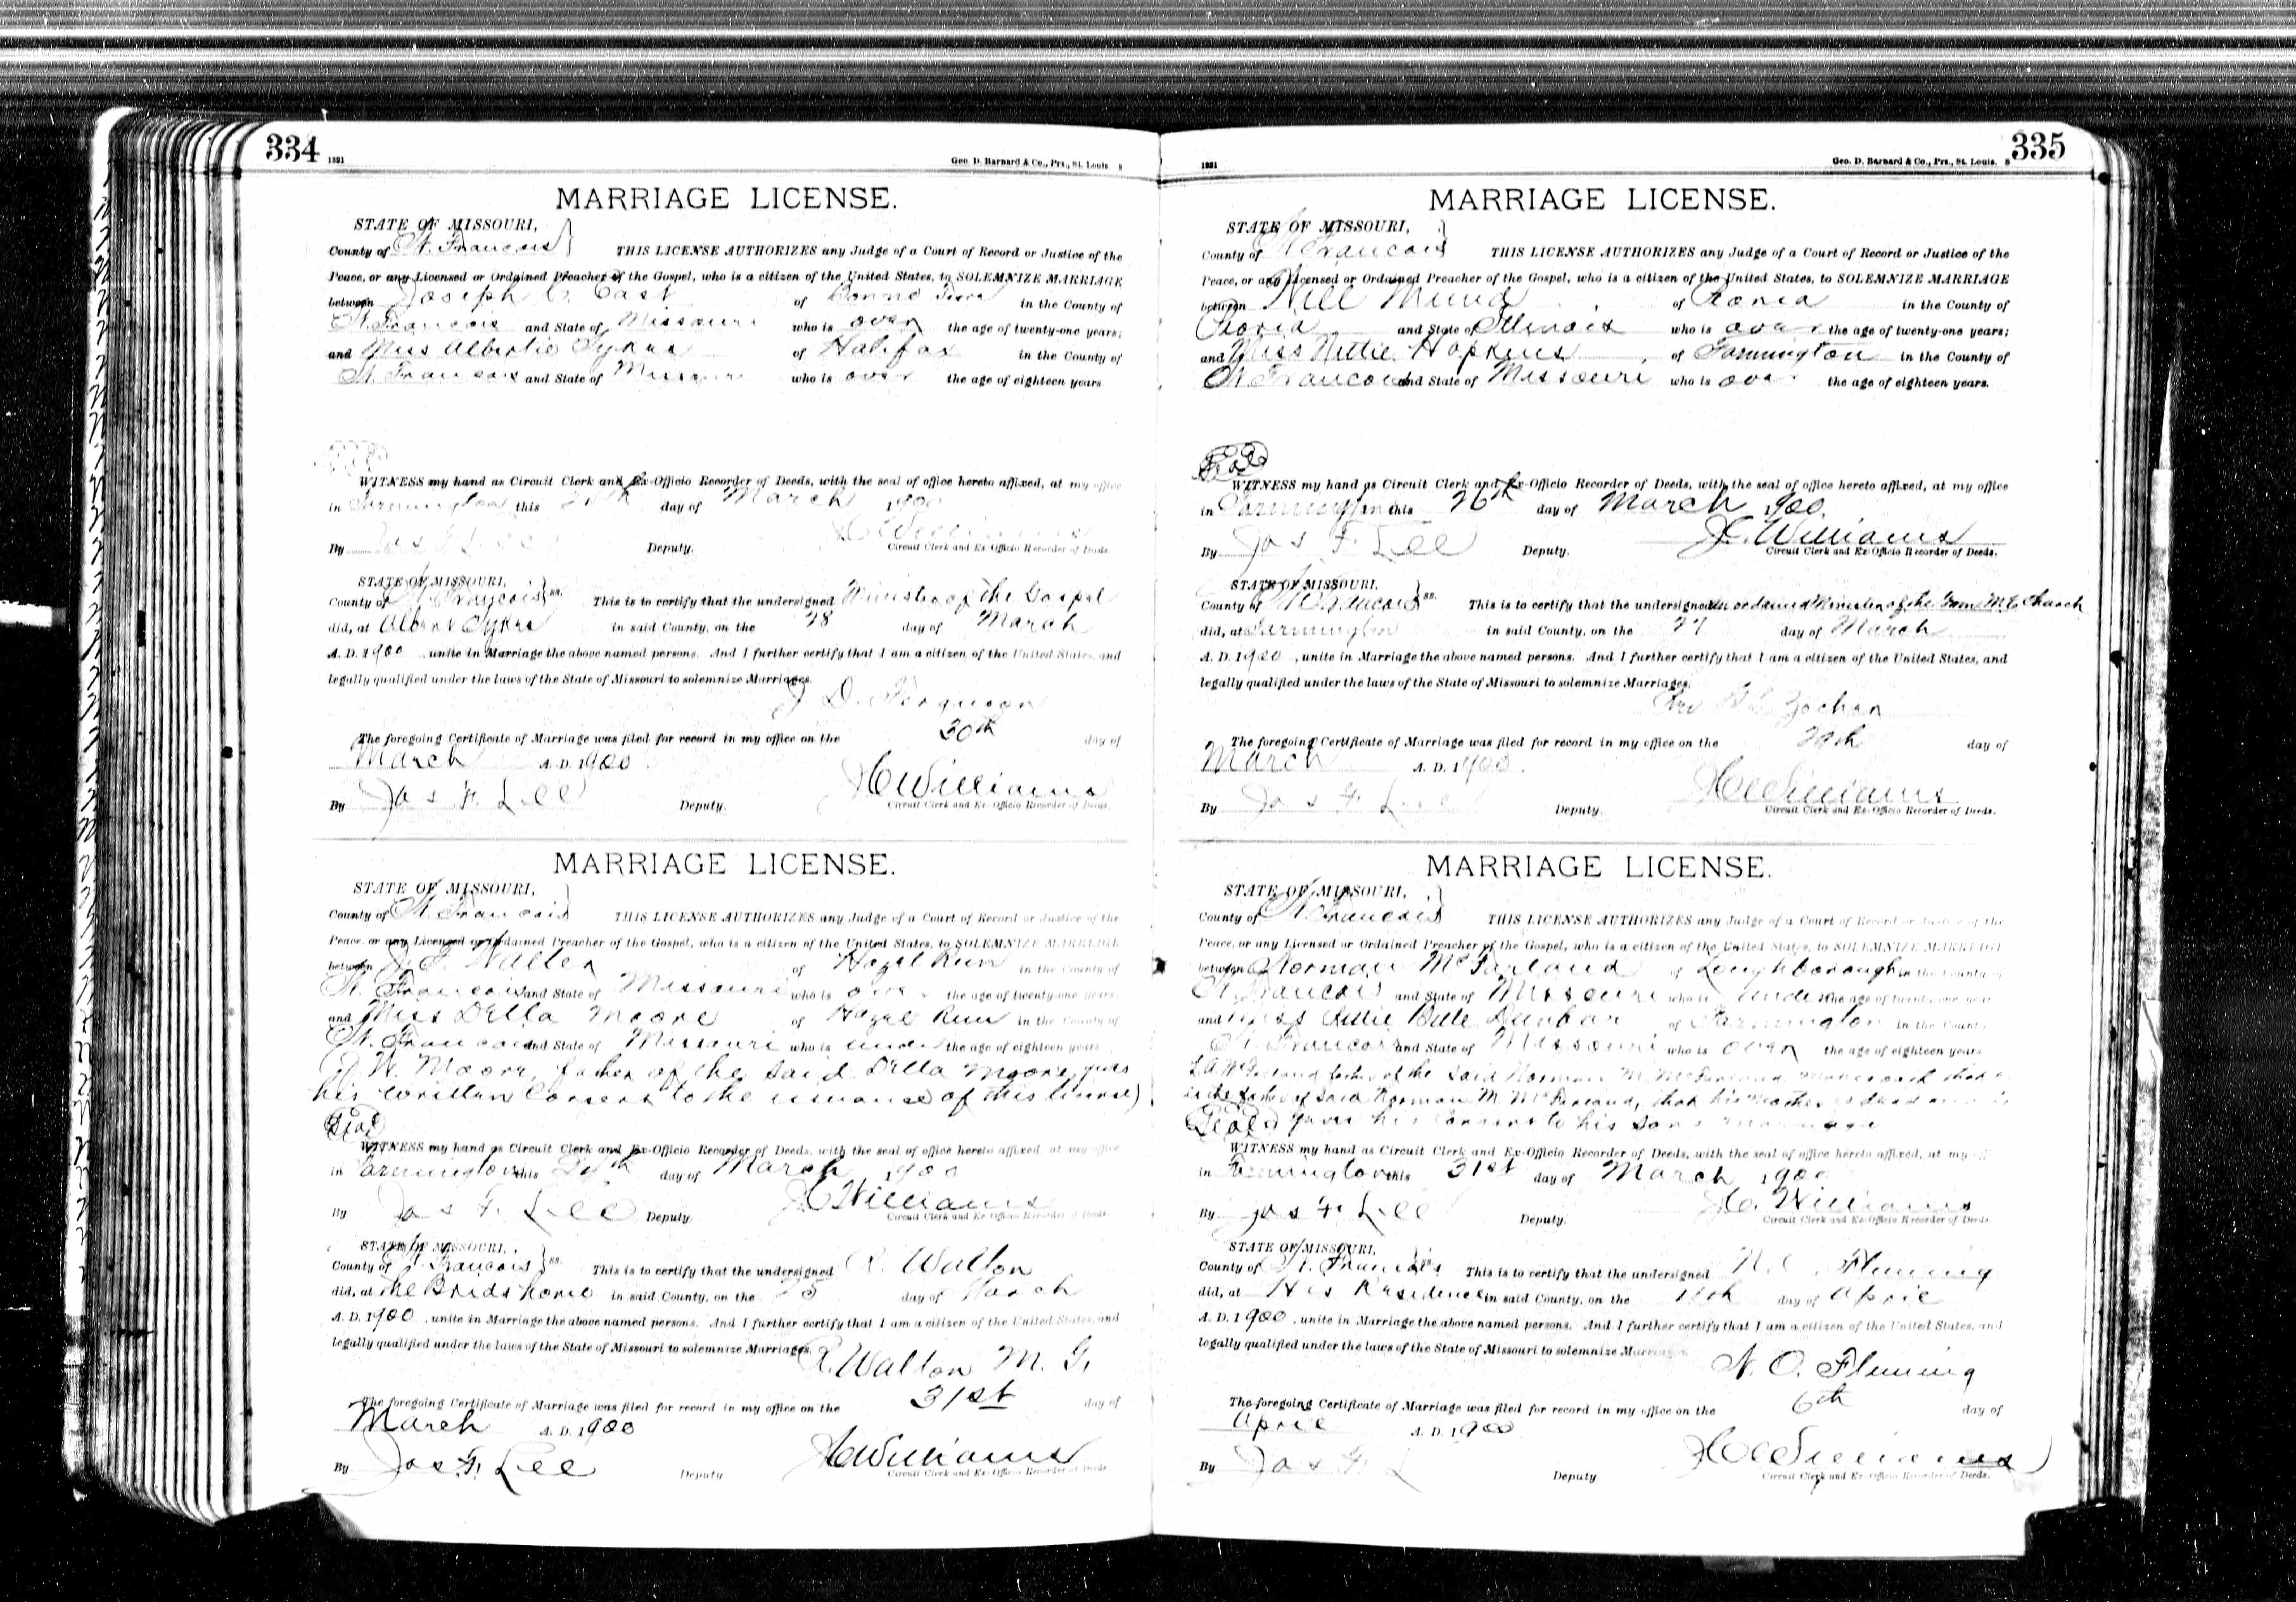 334 1321 Geo. D. Barnard & Co., Prs., St. Louis 8
MARRIAGE LICENSE.
STATE OF MISSOURI,
County of St. Francois THIS LICENSE AUTHORIZES any Judge of a Court of Record or Justice of the
Peace, or any Licensed or Ordained Preacher of the Gospel, who is a citizen of the United States, to SOLEMNIZE MARRIAGE
between Joseph C. East of Bonne Terre in the County of
St. Francois and State of Missouri who is over the age of twenty-one years;
and Miss Albertie Sykes of Halifax in the County of
St. Francois and State of Missouri who is over the age of eighteen years
WITNESS my hand as Circuit Clerk and Ex-Officio Recorder of Deeds, with the seal of office hereto affixed, at my office
in Farmington this day of March 1900
By Jas F. Lee Deputy. Williams
Circuit Clerk and Ex-Officio Recorder of Deeds.
STATE OF MISSOURI,
County of St. Francois ss. This is to certify that the undersigned Minister of the Gospel
did, at Albert Sykes in said County, on the 28 day of March
A. D. 1900, unite in Marriage the above named persons. And I further certify that I am a citizen of the United States, and
legally qualified under the laws of the State of Missouri to solemnize Marriages.
J. D. Ferguson
The foregoing Certificate of Marriage was filed for record in my office on the 30th day of
March A. D. 1900.
By Jas F. Lee Deputy. Williams
Circuit Clerk and Ex-Officio Recorder of Deeds.
MARRIAGE LICENSE.
STATE OF MISSOURI,
County of St. Francois THIS LICENSE AUTHORIZES any Judge of a Court of Record or Justice of the
Peace, or any Licensed or Ordained Preacher of the Gospel, who is a citizen of the United States, to SOLEMNIZE MARRIAGE
between Walter of Hazel Run in the County of
St. Francois and State of Missouri who is over the age of twenty-one years
and Miss Della Moore of Hazel Run in the County of
St. Francois and State of Missouri who is under the age of eighteen years
W. Moore, father of the said Della Moore, gives
his written Consent to the issuance of this license)
Seal
WITNESS my hand as Circuit Clerk and Ex-Officio Recorder of Deeds, with the seal of office hereto affixed at my office
in Farmington this 24th day of March 1900
By Jas F. Lee Deputy. Williams
Circuit Clerk and Ex-Officio Recorder of Deeds.
STATE OF MISSOURI,
County of St. Francois ss. This is to certify that the undersigned R. Walton
did, at the Brids home in said County, on the 25 day of March
A. D. 1900, unite in Marriage the above named persons. And I further certify that I am a citizen of the United States, and
legally qualified under the laws of the State of Missouri to solemnize Marriages.
R. Walton M. G.
The foregoing Certificate of Marriage was filed for record in my office on the 31st day of
March A. D. 1900
By Jas F. Lee Deputy Williams
Circuit Clerk and Ex-Officio Recorder of Deeds.
1321 Geo. D. Barnard & Co., Prs., St. Louis. 8 335
MARRIAGE LICENSE.
STATE OF MISSOURI,
County of St Francois THIS LICENSE AUTHORIZES any Judge of a Court of Record or Justice of the
Peace, or any Licensed or Ordained Preacher of the Gospel, who is a citizen of the United States, to SOLEMNIZE MARRIAGE
between Will Mund of Peoria in the County of
Peoria and State of Illinois who is over the age of twenty-one years;
and Miss Nettie Hopkins of Farmington in the County of
St. Francois and State of Missouri who is over the age of eighteen years.
Seal
WITNESS my hand as Circuit Clerk and Ex-Officio Recorder of Deeds, with the seal of office hereto affixed, at my office
in Farmington this 26th day of March 1900.
By Jas F. Lee Deputy. Williams
Circuit Clerk and Ex-Officio Recorder of Deeds.
STATE OF MISSOURI,
County of St Francois ss. This is to certify that the undersigned an ordained Minister of the M. E. Church
did, at Farmington in said County, on the 27 day of March
A. D. 1900, unite in Marriage the above named persons. And I further certify that I am a citizen of the United States, and
legally qualified under the laws of the State of Missouri to solemnize Marriages.
Zochen
The foregoing Certificate of Marriage was filed for record in my office on the 29th day of
March A. D. 1900.
By Jas F. Lee Deputy. Williams
Circuit Clerk and Ex-Officio Recorder of Deeds.
MARRIAGE LICENSE.
STATE OF MISSOURI,
County of St. Francois THIS LICENSE AUTHORIZES any Judge of a Court of Record or Justice of the
Peace, or any Licensed or Ordained Preacher of the Gospel, who is a citizen of the United States, to SOLEMNIZE MARRIAGE
between Norman McFarland of Loughborough in the County of
St. Francois and State of Missouri who is under the age of twenty-one years
and Miss Lillie Belle Dunbar of Farmington in the County
St. Francois and State of Missouri who is over the age of eighteen years
father of the said Norman M. McFarland makes oath that
is the father of said Norman M. McFarland, that his mother is dead
Seal gives his Consent to his sons marriage
WITNESS my hand as Circuit Clerk and Ex-Officio Recorder of Deeds, with the seal of office hereto affixed, at my
in Farmington this 31st day of March 1900
By Jas F. Lee Deputy. Williams
Circuit Clerk and Ex-Officio Recorder of Deeds
STATE OF MISSOURI,
County of St. Francois This is to certify that the undersigned N. O. Fleming
did, at His Residence in said County, on the day of April
A. D. 1900, unite in Marriage the above named persons. And I further certify that I am a citizen of the United States, and
legally qualified under the laws of the State of Missouri to solemnize Marriages
N. O. Fleming
The foregoing Certificate of Marriage was filed for record in my office on the 6th day of
April A. D. 1900
By Jas F. L Deputy. Williams
Circuit Clerk and Ex-Officio Recorder of Deeds.